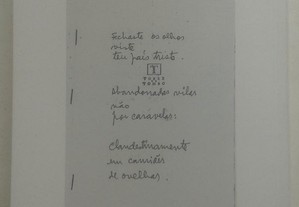 1. Fechaste os olhos
viste
teu país triste.
Abandonados viles
não
por caravelas:
Clandestinamente
em camiões
de ovelhas.